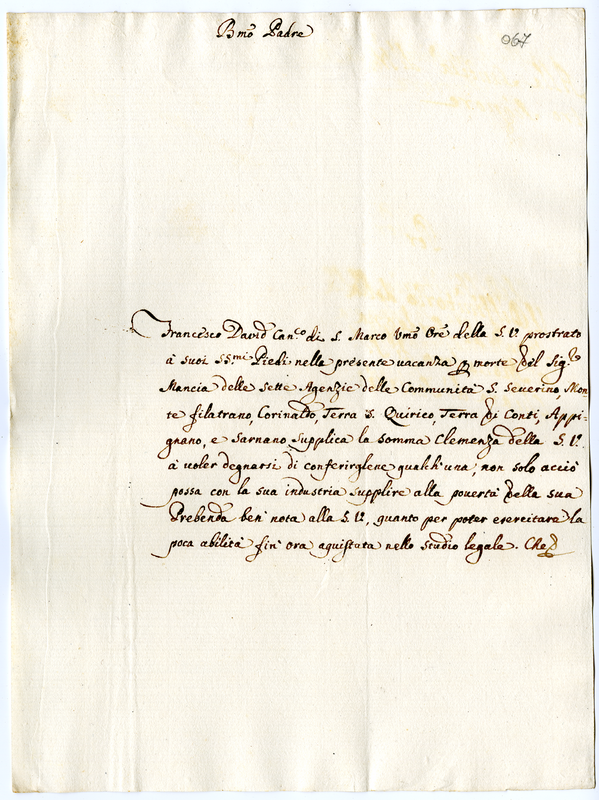 Bmõ Padre
067
Francesco David Can.co di S. Marco Vmo Ore della S.V. prostrato
à suoi SS.mi Piedi nella presente vacanza p morte del Sig.r
Mancia delle sette Agenzie delle Communità S. Severino, Mon
te filatrano, Corinaldo, Terra S. Quirico, Terra di Conti, Appi-
gnano, e Sarnano supplica la somma Clemenza della S. V.
à voler degnarsi di conferirglene qualch'una, non solo acciò
possa con la sua industria supplire alla povertà della sua
Prebenda ben nota alla S. V., quanto per poter esercitare la
poca abilità fin' ora aquistata nello studio legale. Che